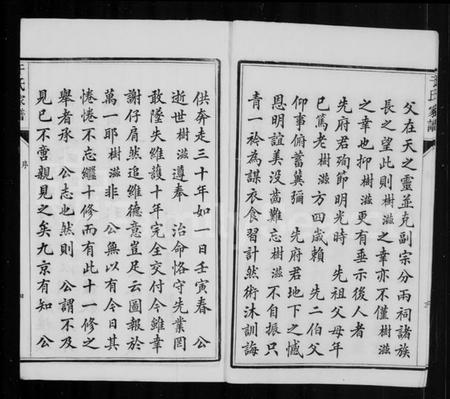 父在天之靈並克副宗分兩祠諸族
長之望此則樹滋之幸亦不僅樹滋
之幸也抑樹滋更有垂示後人者
先府君殉節明光時 先祖父母年
已篤老樹滋方四歲賴 先二伯父
仰事俯蓄冀彌 先府君地下之憾
恩明誼美沒齒難忘樹滋不自振只
青一衿為謀衣食習計然術沐訓誨
供奔走三十年如一日壬寅春 公
逝世樹滋遵奉 治命恪守先業罔
敢隳失維護十年完全交付今雖幸
謝仔肩然追維德意豈足云圖報於
萬一耶樹滋非 公無以有今日其
惓惓不忘繼十修而有此十一修之
舉者承 公志也然則 公謂不及
見已不啻親見之矣九京有知 公
氏家譜
序
氏家譜